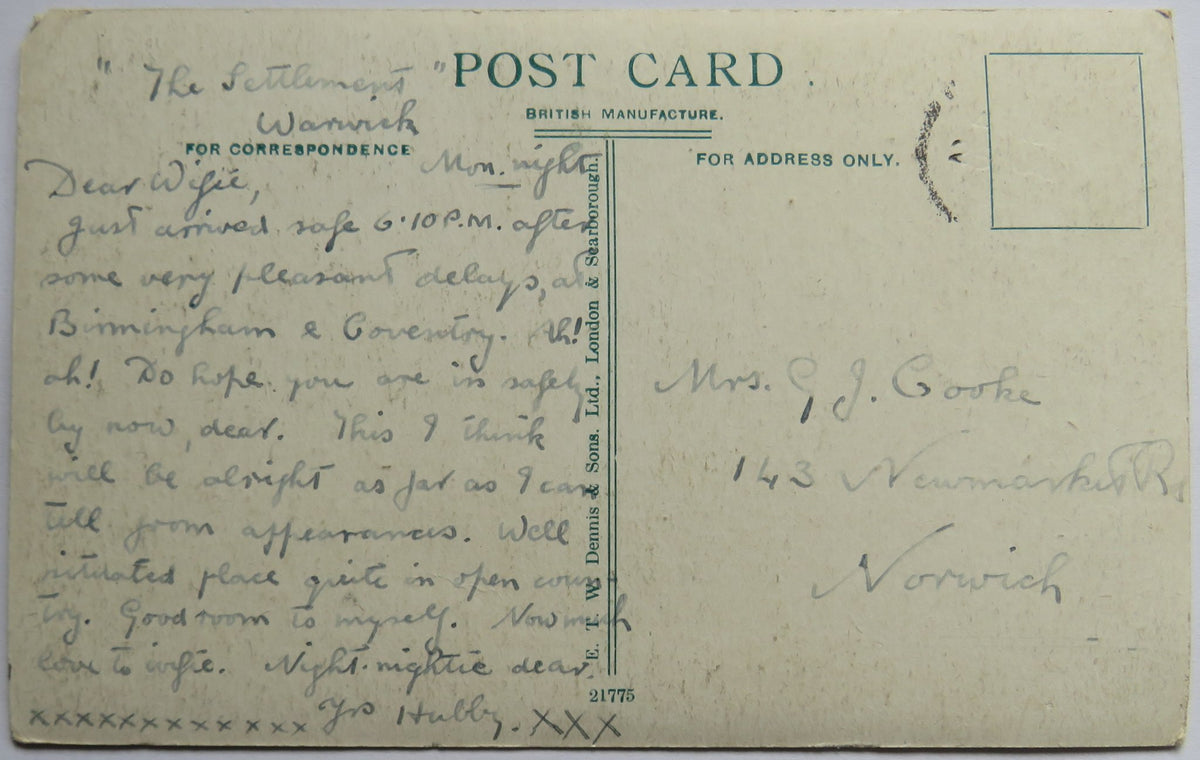 " The Settlement "
Warwick
POST CARD
BRITISH MANUFACTURE.
FOR CORRESPONDENCE
FOR ADDRESS ONLY.
Mon. night
Dear Wifie,
Just arrived safe 6·10 P.M. after
some very pleasant delays, at
Birmingham & Coventry. Ah!
ah! Do hope you are in safely
by now, dear. This I think
will be alright as far as I can
tell from appearances. Well
situated place quite in open coun
try. Good room to myself. Now much
love to wifie. Night-nightie dear.
Yrs Hubby. XXX
xxxxxxxxxxxxx
E. T. W. Dennis & Sons. Ltd., London & Scarborough.
21775
Mrs. G J. Cooke
143 Newmarket Rd
Norwich